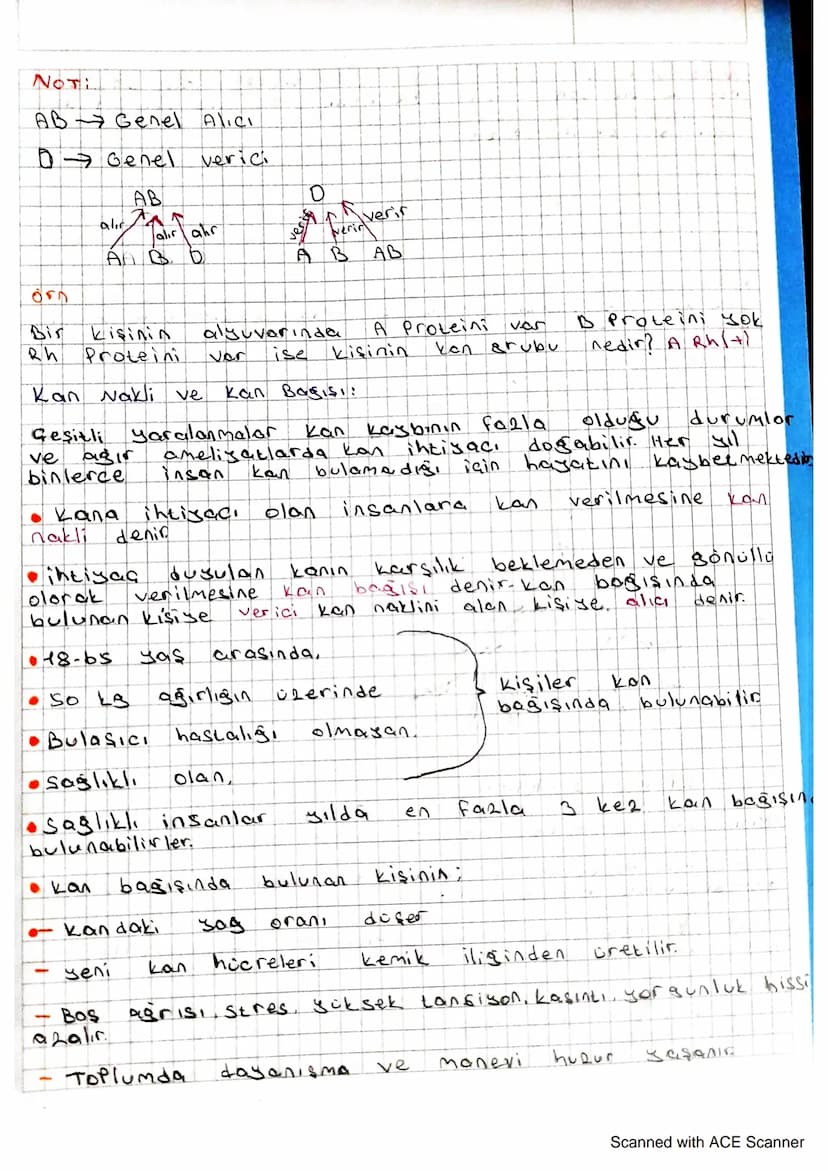 NOT:
AB → Genel Alıcı
O → Genel verici
AB
alır alır alır
A B O
O
verir verir verir
A B AB
örn
Bir kişinin alyuvarında A Proteini var B Proteini yok
Rh Proteini var ise kişinin kan grubu nedir? A Rh(+)
Kan Nakli ve Kan Bağışı:
Çeşitli yaralanmalar kan kaybının fazla olduğu durumlar
ve ağır ameliyatlarda kan ihtiyacı doğabilir. Her yıl
binlerce insan kan bulamadığı için hayatını kaybetmektedir
• Kana ihtiyacı olan insanlara kan verilmesine kan
nakli denir
• ihtiyaç duyulan kanın karşılık beklemeden ve gönüllü
olarak verilmesine kan bağışı denir. kan bağışında
bulunan kişiye verici kan naklini alan kişiye. alıcı denir.
• 18-65 yaş arasında,
• 50 kg ağırlığın üzerinde
kişiler kan
bağışında bulunabilir
• Bulaşıcı hastalığı olmayan.
• sağlıklı olan,
• Sağlıklı insanlar yılda en fazla 3 kez kan bağışın
bulunabilirler.
• kan bağışında bulunan kişinin;
- kandaki yağ oranı düşer
- yeni kan hücreleri kemik iliğinden üretilir.
- Baş ağrısı, stres, yüksek tansiyon, kaşıntı, yorgunluk hissi
azalır.
- Toplumda dayanışma ve manevi huzur yaşanır.
Scanned with ACE Scanner